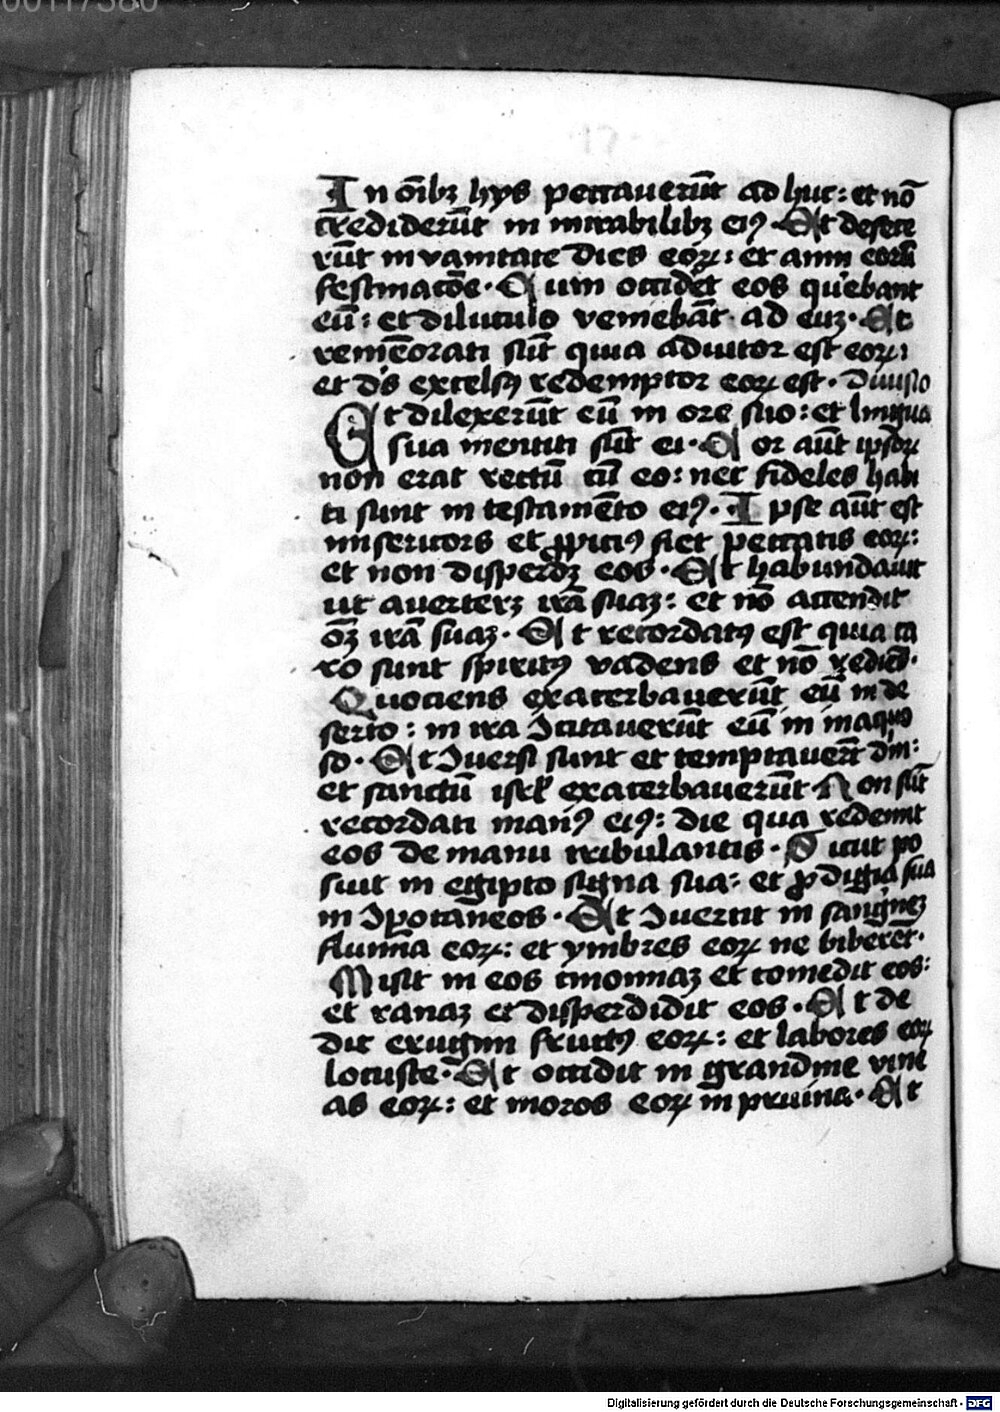 00117380
In om̄ibꝫ hys peccauerūt ad huc: et nō
crediderūt in mirabilibꝫ eiꝰ Et defece
rūt in vanitate dies eoꝝ: et anni eorū
festinacōe. Cum occidēt eos querebant
eū: et diluculo veniebāt ad euꝫ. Et
rememorati sūt quia adiutor est eoꝝ:
et dꝰs excelsꝰ redemptor eoꝝ est. Diuisio
Et dilexerūt eū in ore suo: et lingua
sua mentiti sūt ei. Cor aūt ipsoꝝ
non erat rectū cū eo: nec fideles habi
ti sunt in testamēto eiꝰ. Ipse aūt est
misericors et ꝓpiciꝰ fiet peccatis eoꝝ:
et non disperdꝫ eos. Et habundauit
ut auerterꝫ irā suaꝫ: et nō accendit
om̄ꝫ irā suaꝫ. Et recordatꝰ est quia ca
ro sunt spiritꝰ vadens et nō rediēs.
Quociens exacerbauerūt eū in de
serto: in ira ↄcitauerūt eū in inaquo
so. Et ↄuersi sunt et temptauerūt dn̄:
et sanctū isrl̄ exacerbauerūt Non sūt
recordati manꝰ eiꝰ: die qua redemit
eos de manu tribulantis. Sicut po
suit in egipto signa sua: et ꝓdigia sua
in ↄpo taneos. Et ↄuertit in sangineꝫ
flumīa eoꝝ: et ymbres eoꝝ ne biberēt.
Misit in eos cinomiaꝫ et comedit eos:
et ranaꝫ et disperdidit eos. Et de
dit erugini fructꝰ eoꝝ: et labores eoꝝ
locuste. Et occidit in grandine vine
as eoꝝ: et moros eoꝝ in pruina. Et
Digitalisierung gefördert durch die Deutsche Forschungsgemeinschaft - DFG